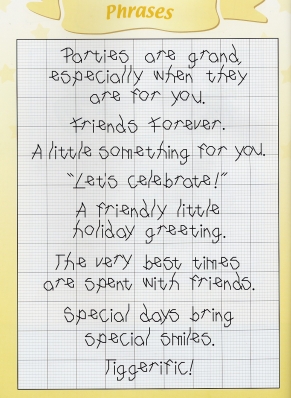 Phrases
Parties are grand,
especially when they
are for you.
Friends Forever.
A little something for you.
"Let's celebrate!"
A friendly little
holiday greeting.
The very best times
are spent with friends.
Special days bring
special smiles.
Tiggerific!